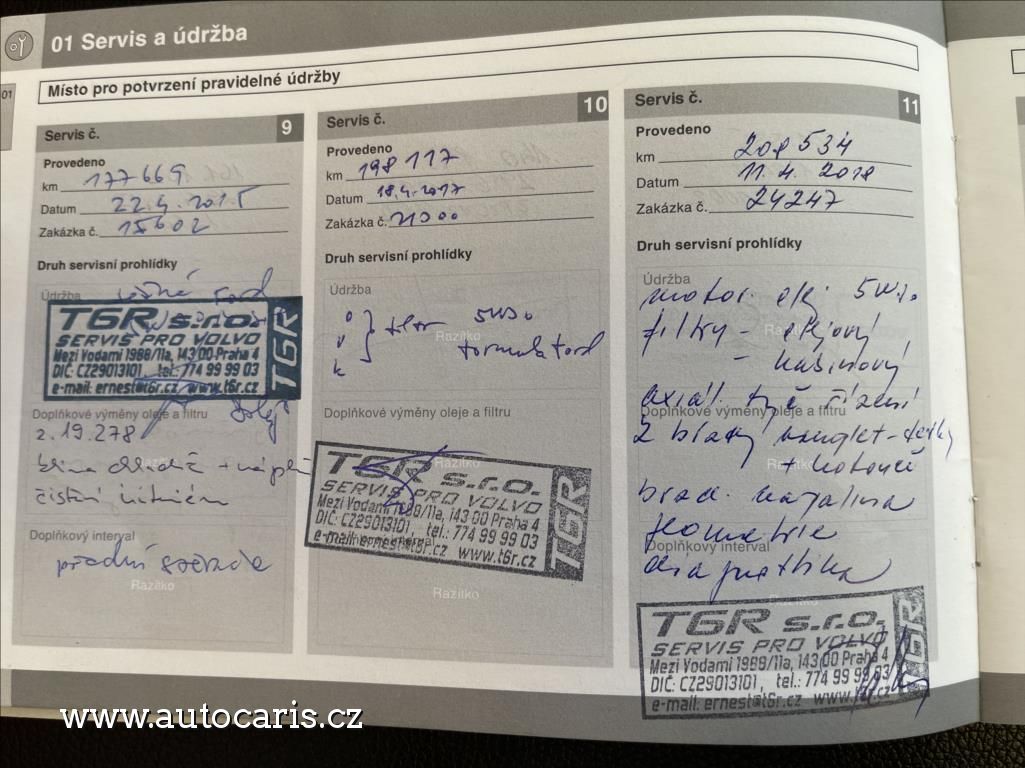 01 Servis a údržba
01
Místo pro potvrzení pravidelné údržby
Servis č. 9
Provedeno
km 177669
Datum 22.4.2015
Zakázka č. 15602
Druh servisní prohlídky
Údržba
Ford
T6R s.r.o.
SERVIS PRO VOLVO
Mezi Vodami 1988/11a, 143 00 Praha 4
DIČ: CZ29013101, tel.: 774 99 99 03
e-mail: ernest@t6r.cz www.t6r.cz
T6R
Doplňkové výměny oleje a filtru
2.19.278
čistění
Doplňkový interval
přední
Razítko
Servis č. 10
Provedeno
km 198117
Datum 18.4.2017
Zakázka č. 21300
Druh servisní prohlídky
Údržba
o
v
k
5W30
Razítko
formula ford
Doplňkové výměny oleje a filtru
Razítko
T6R s.r.o.
SERVIS PRO VOLVO
Mezi Vodami 1988/11a, 143 00 Praha 4
DIČ: CZ29013101, tel.: 774 99 99 03
e-mail: ernest@t6r.cz www.t6r.cz
T6R
Razítko
Servis č. 11
Provedeno
km 208534
Datum 11.4.2018
Zakázka č. 24247
Druh servisní prohlídky
Údržba
motor. olej 5W30
filtry - olejový
- kabinový
axiál. tyč řízení
Doplňkové výměny oleje a filtru
2 brzdy komplet - desky
+ kotouče
brzd. kapalina
geometrie
Doplňkový interval
diagnostika
Razítko
T6R s.r.o.
SERVIS PRO VOLVO
Mezi Vodami 1988/11a, 143 00 Praha 4
DIČ: CZ29013101, tel.: 774 99 99 03
e-mail: ernest@t6r.cz www.t6r.cz
T6R
www.autocaris.cz